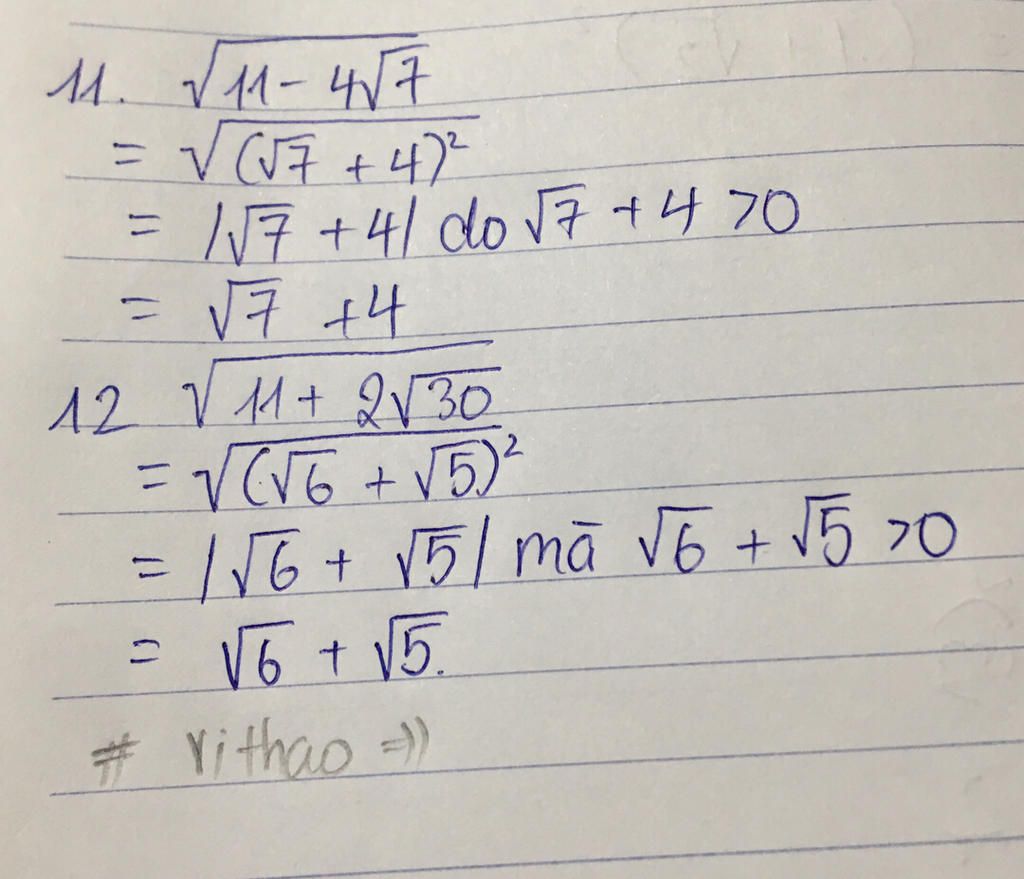 11. √(11 - 4√7)
= √((√7 + 4)²)
= |√7 + 4| do √7 + 4 > 0
= √7 + 4
12 √(11 + 2√30)
= √((√6 + √5)²)
= |√6 + √5| mā √6 + √5 > 0
= √6 + √5.
# rithao =))